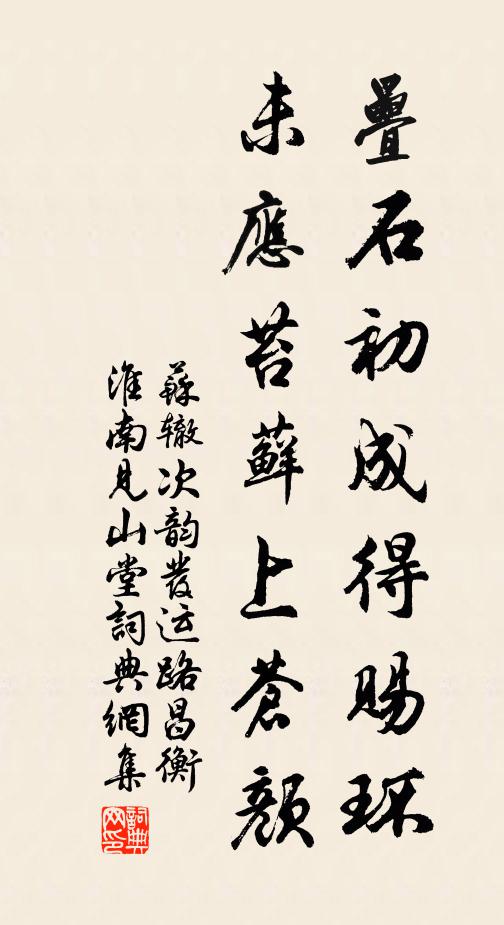 疊石初成得賜环
未應苔蘚上蒼顏
蘇辙次韵發运路昌衡
淮南見山堂詞典網集
詞典網印